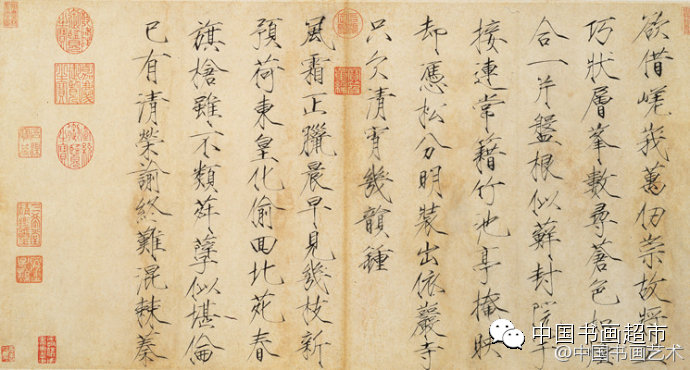 欲借嵯峨萬仞崇故將
巧狀層峯數尋蒼色如
合一片盤根似蘚封院宇
接連常籍竹池亭掩映
却憑松分明裝出依巖寺
只欠清宵幾韻鍾
風霜正臘晨早見幾枝新
預荷東皇化偷囬北苑春
旗槍雖不類荈蘖似堪倫
已有清榮諭終難混棘蓁
中国书画超市
@中国书画艺术